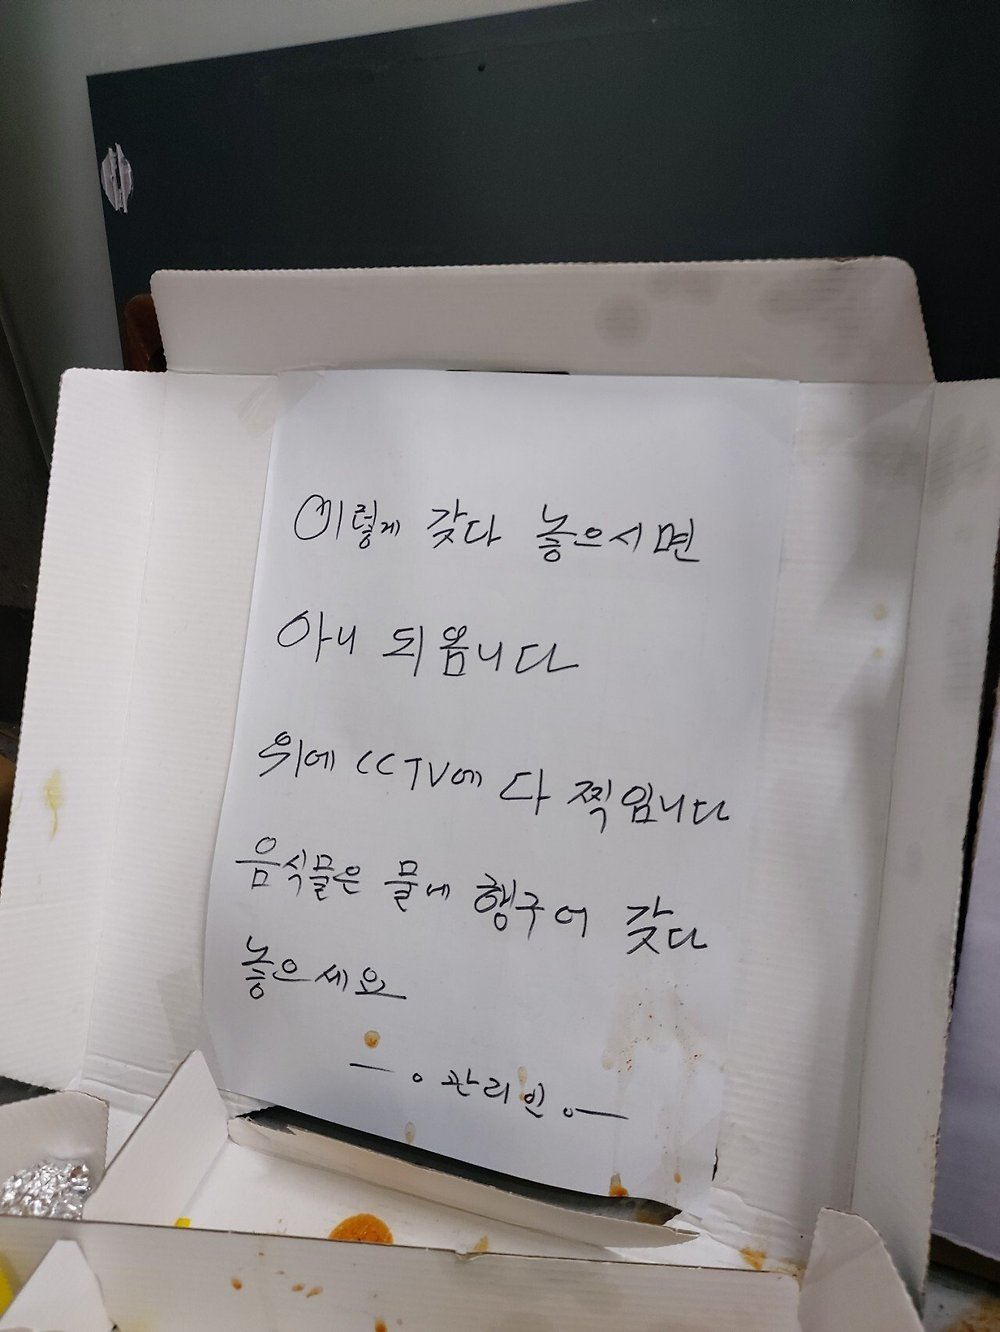 이렇게 갖다 놓으시면
아니 되옵니다
위에 CCTV에 다 찍입니다
음식물은 물에 행구어 갖다
놓으세요
— 。관리인 。—